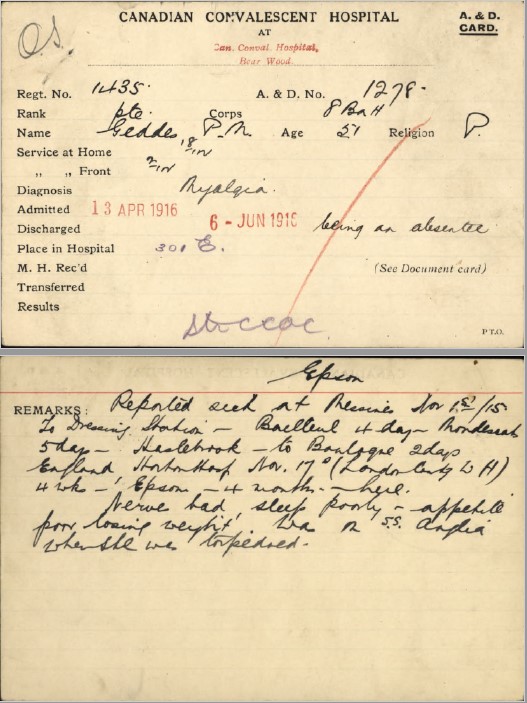 O.S.
CANADIAN CONVALESCENT HOSPITAL
AT
Can. Conval. Hospital,
Bear Wood.
A. & D.
CARD.
Regt. No. 1435. A. & D. No. 1278.
Rank Pte. Corps 8 Batt
Name Geddes P.M. Age 51 Religion P.
Service at Home 18/12
„ „ Front 2/12
Diagnosis Myalgia.
Admitted 13 APR 1916
Discharged 6 - JUN 1916 being an absentee
Place in Hospital 301 E.
M. H. Rec'd (See Document card)
Transferred
Results
P T.O.
Epsom
REMARKS: Reported sick at Messines Nov 1st/15
To Dressing Station - Bailleul 4 days -
5 days - Hasebrook - to Boulogne 2 days
England, Horton Hosp Nov. 17th (London County W H)
4 wks -, Epsom - 4 months - here.
Nerve bad, sleep poorly - appetite
poor losing weight. Was on S.S. Anglia
when she was torpedoed.